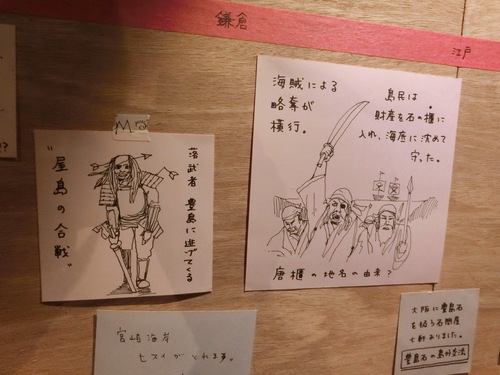 鎌倉
江戸
"屋島の合戦"
落武者 豊島に逃げてくる
海賊による
略奪が
横行。
島民は、
財産を石の櫃に
入れ、海底に沈めて
守った。
唐櫃の地名の由来？
宮崎海岸
セスイがとれる。
大阪に豊島石
を扱う石問屋
七軒ありました。
豊島石の島外生活
!?